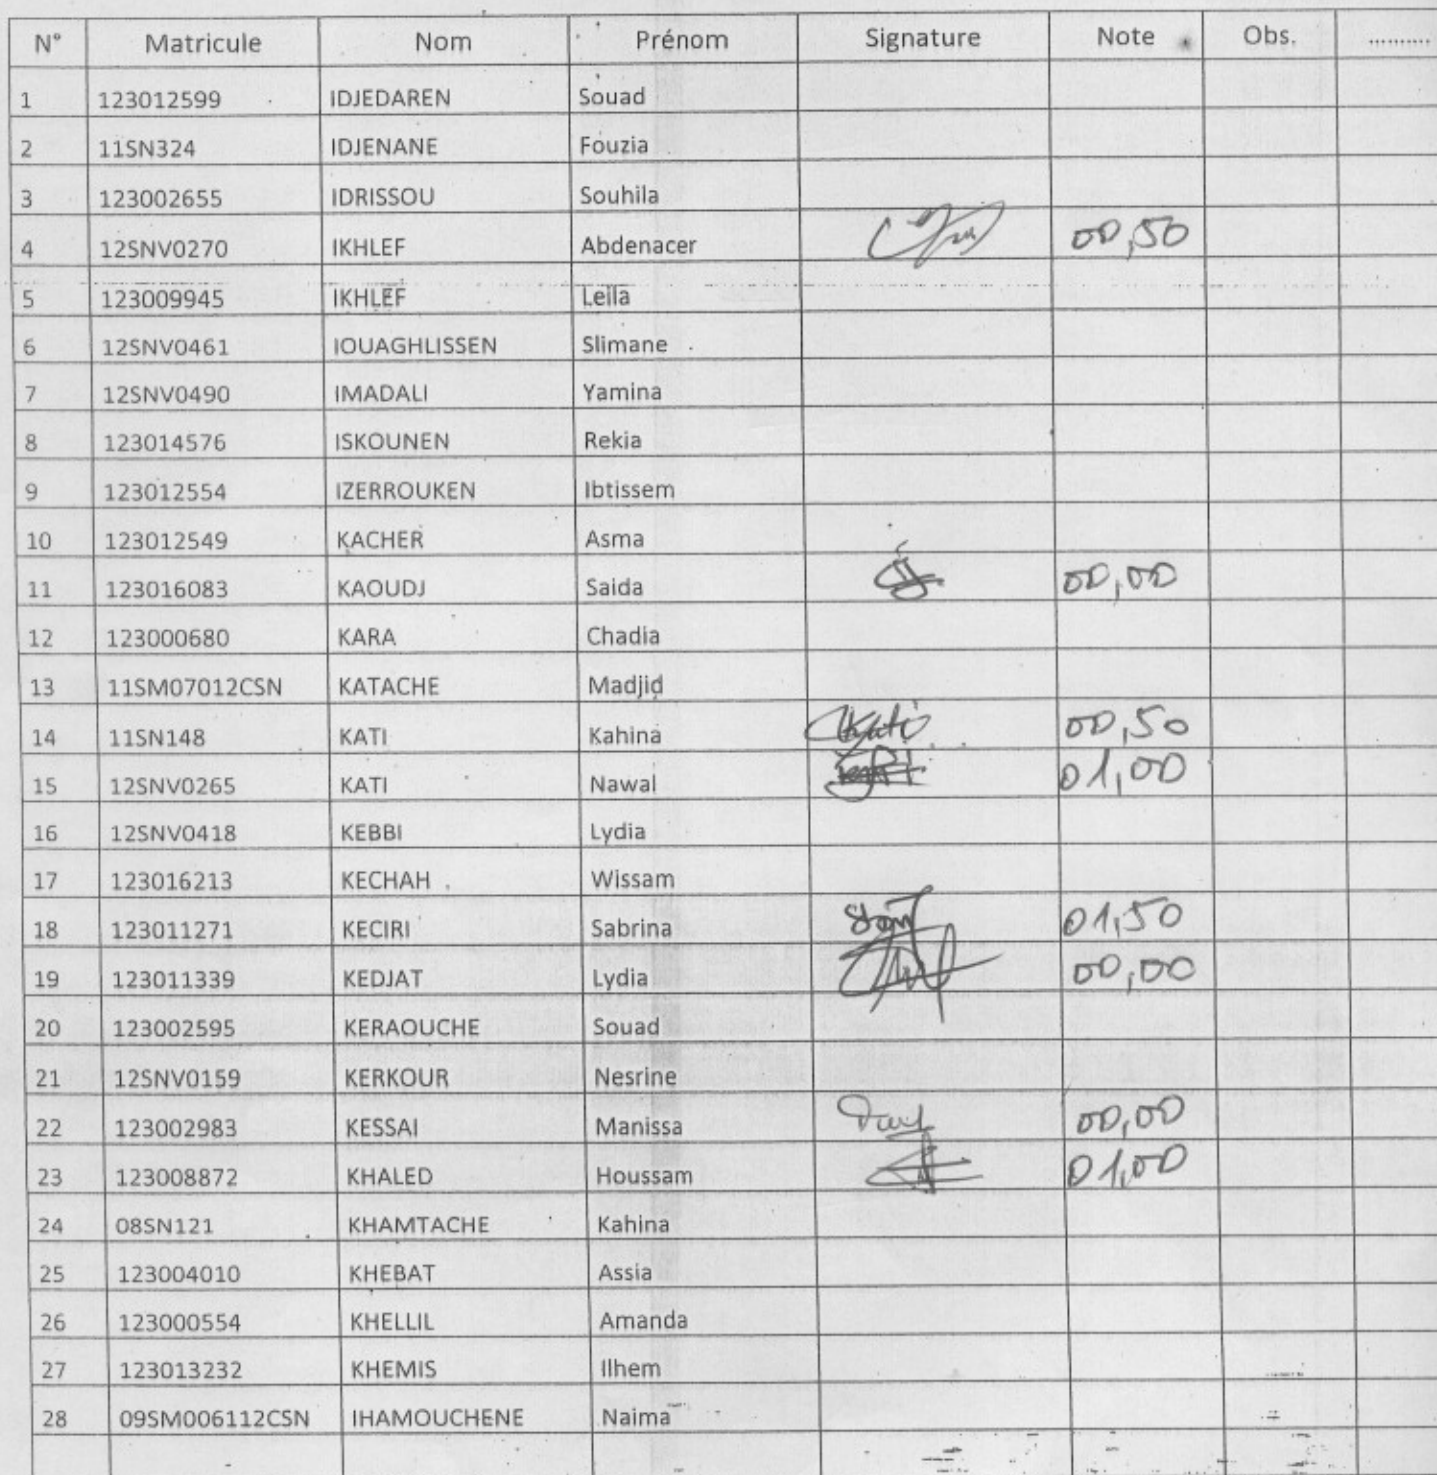 N° Matricule Nom Prénom Signature Note Obs. ...........
1 123012599 IDJEDAREN Souad
2 11SN324 IDJENANE Fouzia
3 123002655 IDRISSOU Souhila
4 12SNV0270 IKHLEF Abdenacer 00,50
5 123009945 IKHLEF Leila
6 12SNV0461 IOUAGHLISSEN Slimane
7 12SNV0490 IMADALI Yamina
8 123014576 ISKOUNEN Rekia
9 123012554 IZERROUKEN Ibtissem
10 123012549 KACHER Asma
11 123016083 KAOUDJ Saida 00,00
12 123000680 KARA Chadia
13 11SM07012CSN KATACHE Madjid
14 11SN148 KATI Kahina Kati 00,50
15 12SNV0265 KATI Nawal 01,00
16 12SNV0418 KEBBI Lydia
17 123016213 KECHAH Wissam
18 123011271 KECIRI Sabrina 01,50
19 123011339 KEDJAT Lydia 00,00
20 123002595 KERAOUCHE Souad
21 12SNV0159 KERKOUR Nesrine
22 123002983 KESSAI Manissa 00,00
23 123008872 KHALED Houssam 01,00
24 08SN121 KHAMTACHE Kahina
25 123004010 KHEBAT Assia
26 123000554 KHELLIL Amanda
27 123013232 KHEMIS Ilhem
28 09SM006112CSN IHAMOUCHENE Naima